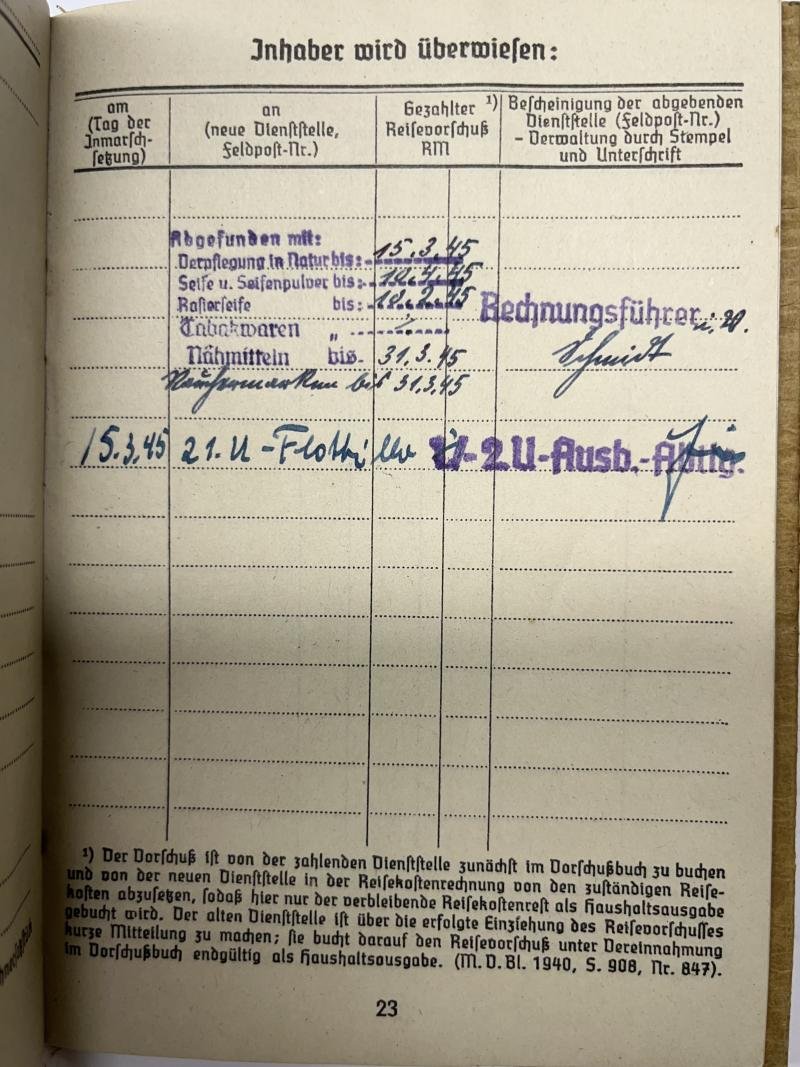 Inhaber wird überwiesen:
am
(Tag der
Inmarsch-
setzung)
an
(neue Dienststelle,
Feldpost-Nr.)
Gezahlter ¹)
Reisevorschuß
RM
Bescheinigung der abgebenden
Dienststelle (Feldpost-Nr.)
- Verwaltung durch Stempel
und Unterschrift
Abgefunden mit:
Verpflegung in Natur bis: 15.3.45
Seife u. Seifenpulver bis: 45
Rasierseife bis: 45
Tabakwaren „
Nähmitteln bis 31.3.45
Rauchermarken bis 31.3.45
Rechnungsführer
Schmidt
15.3.45 21. U-Flottille 2U-Ausb.-Abtlg.
¹) Der Vorschuß ist von der zahlenden Dienststelle zunächst im Vorschußbuch zu buchen
und von der neuen Dienststelle in der Reisekostenrechnung von den zuständigen Reise-
kosten abzusetzen, sodaß hier nur der verbleibende Reisekostenrest als Haushaltsausgabe
gebucht wird. Der alten Dienststelle ist über die erfolgte Einziehung des Reisevorschusses
kurze Mitteilung zu machen; sie bucht darauf den Reisevorschuß unter Vereinnahmung
im Vorschußbuch endgültig als Haushaltsausgabe. (M. D. Bl. 1940, S. 908, Nr. 847).
23